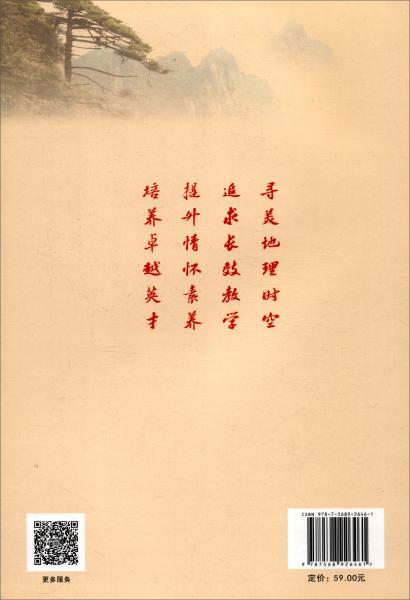 寻美地理时空
追求长效教学
提升情怀素养
培养卓越英才
更多服务
ISBN 978-7-5689-2646-1
9 787568 926461>
定价：59.00元